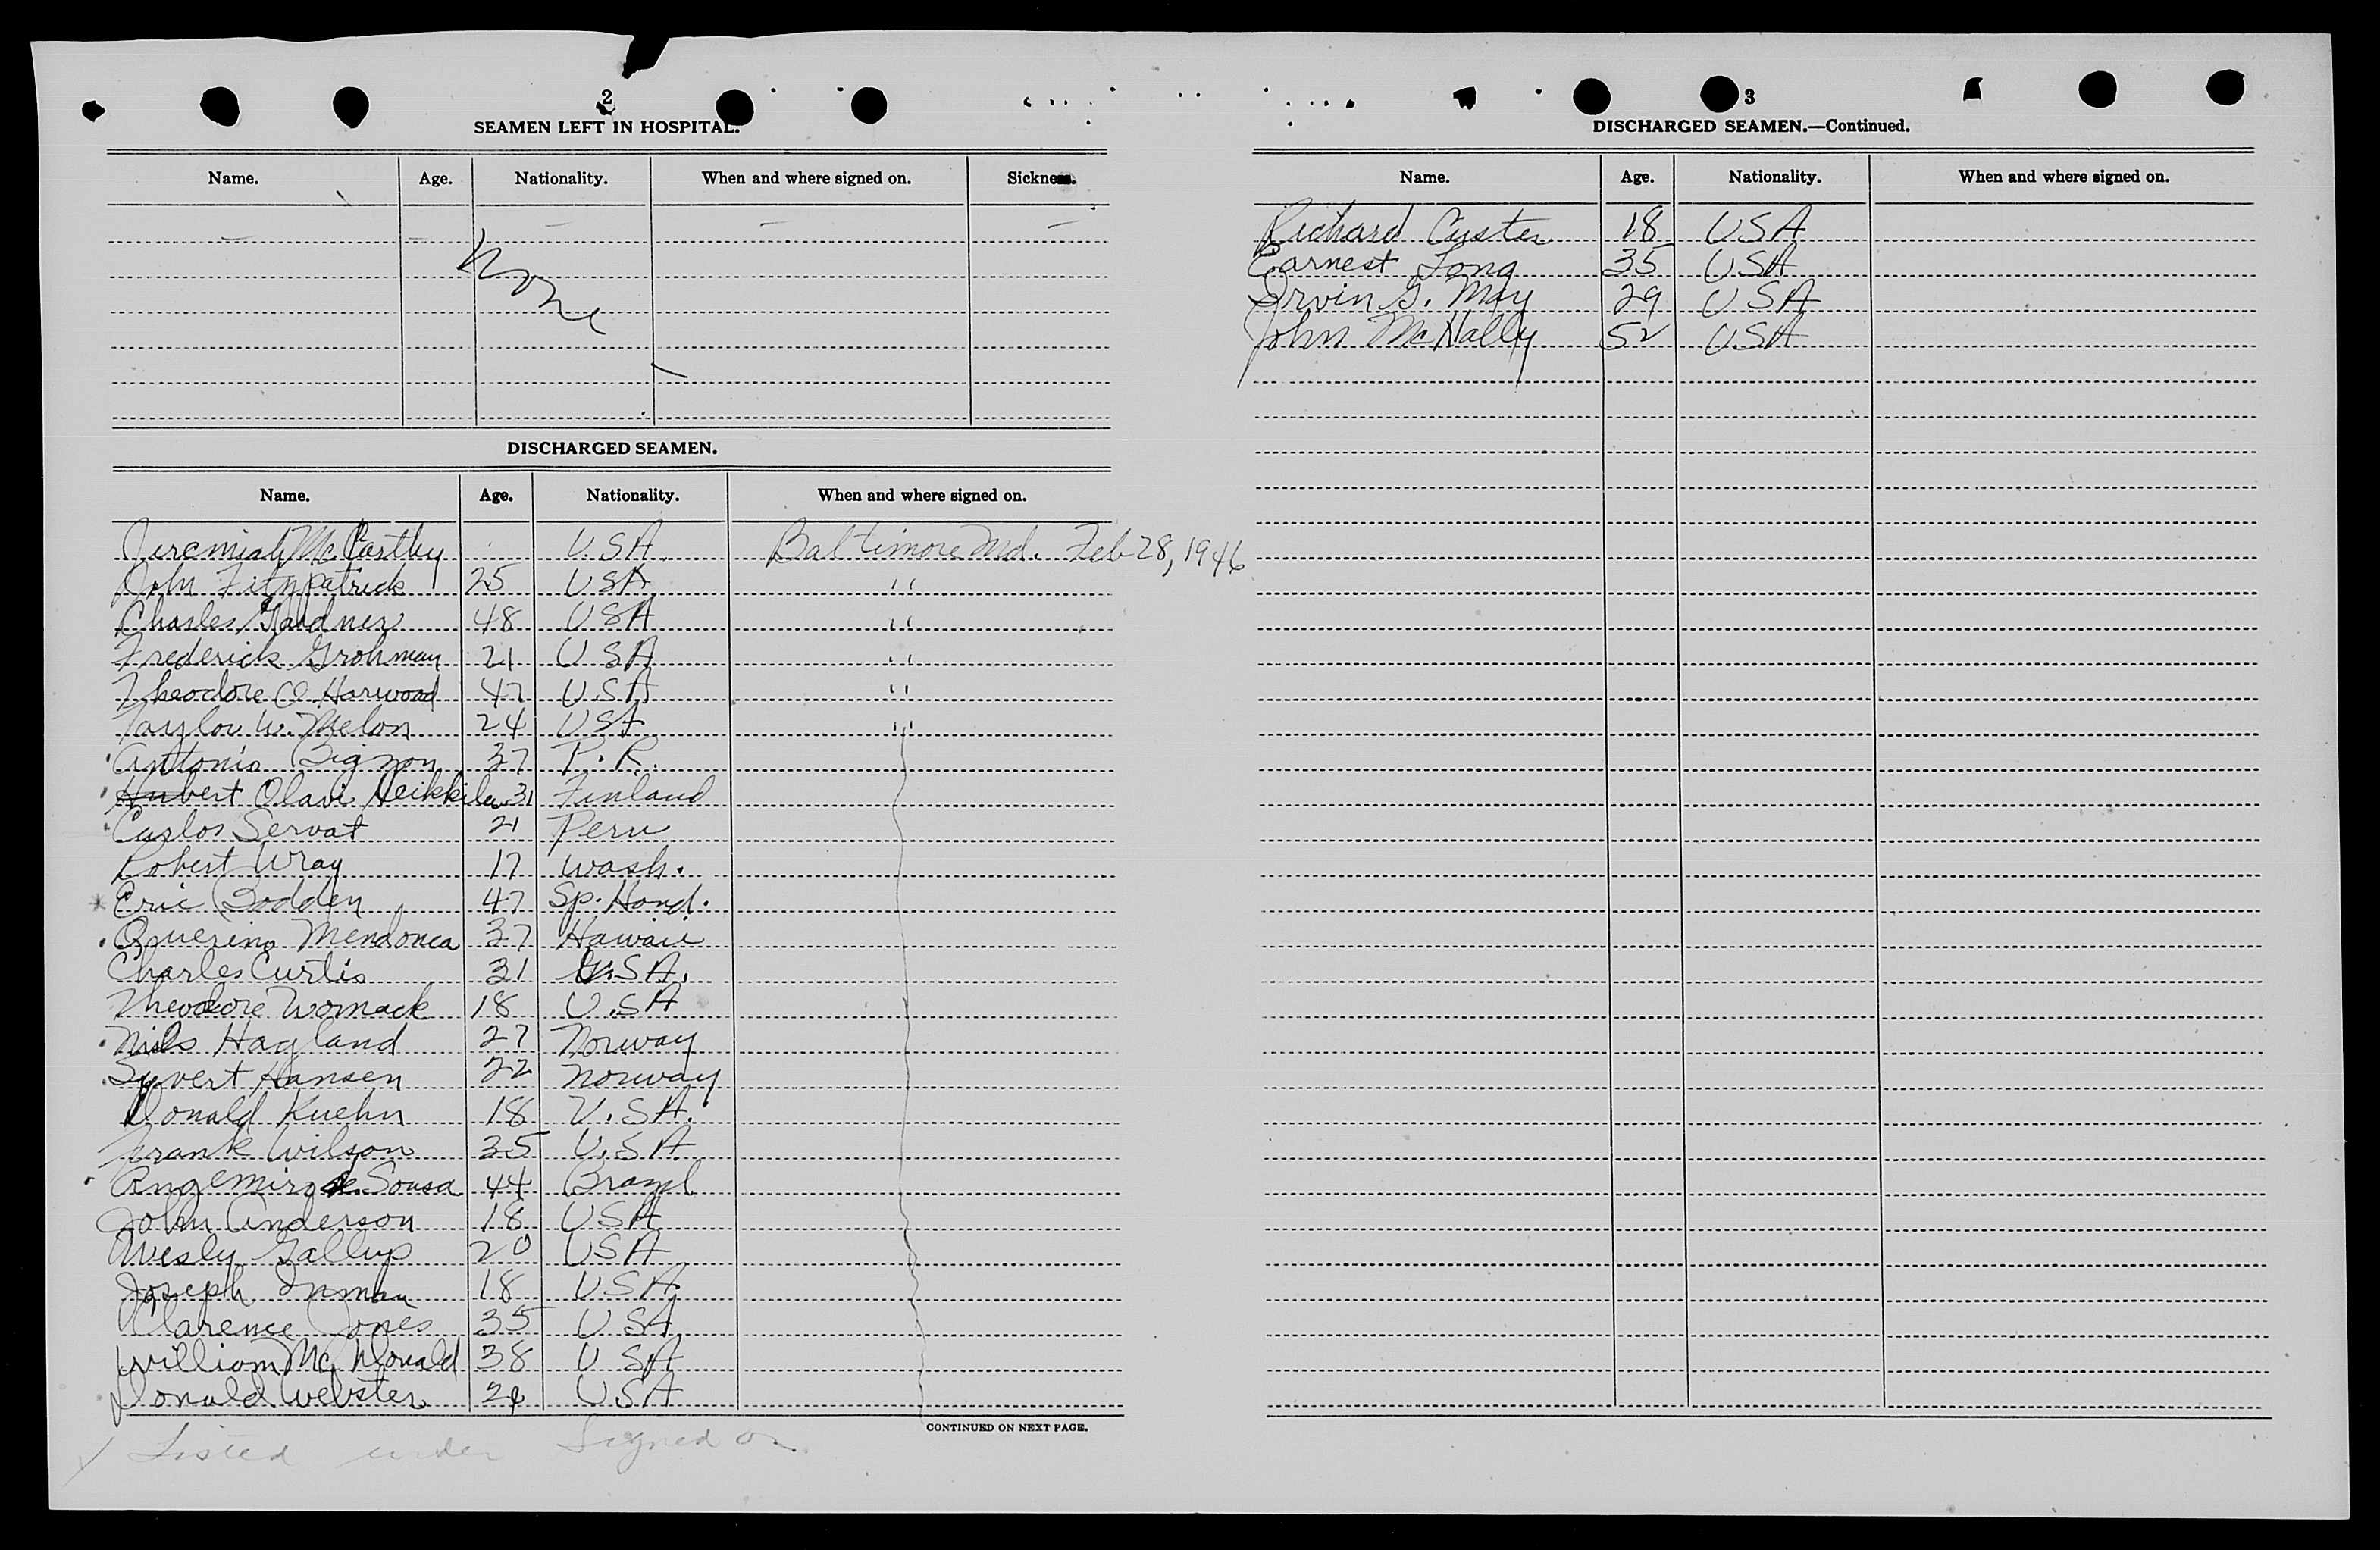 2
SEAMEN LEFT IN HOSPITAL.
Name. Age. Nationality. When and where signed on. Sickness.
None
DISCHARGED SEAMEN.
Name. Age. Nationality. When and where signed on.
Jeremiah McCarthy U.S.A. Baltimore Md. Feb 28, 1946
John Fitzpatrick 25 USA "
Charles Gardner 48 USA "
Frederick Grohman 21 USA "
Theodore O. Harwood 47 USA "
Taylor W. Melon 24 USA "
Antonio Bigzon 37 P.R.
Hubert Olavi Heikkila 31 Finland
Carlos Servat 21 Peru
Robert Wray 17 Wash.
Eric Bodden 47 Sp. Hond.
Querino Mendonca 37 Hawaii
Charles Curtis 31 U.S.A.
Theodore Womack 18 U.S.A
Nils Hagland 27 Norway
Syvert Hansen 22 Norway
Donald Kuehn 18 U.S.A.
Frank Wilson 35 U.S.A
Angemiro de Sousa 44 Brazil
John Anderson 18 USA
Wesly Gallup 20 USA
Joseph Inman 18 U.S.A.
Clarence Jones 35 USA
William McDonald 38 USA
Donald Webster USA
CONTINUED ON NEXT PAGE.
Listed under Signed on
3
DISCHARGED SEAMEN.—Continued.
Name. Age. Nationality. When and where signed on.
Richard Custer 18 USA
Earnest Long 35 USA
Irvin G. May 29 USA
John McNally 52 USA